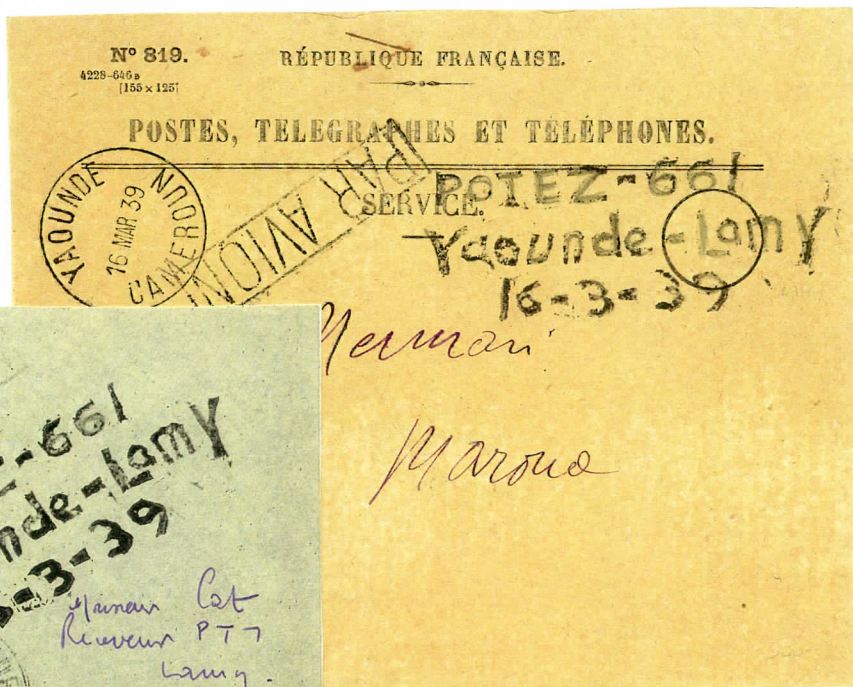 Nº 819.
4228-646 B
[155 × 125]
RÉPUBLIQUE FRANÇAISE.
POSTES, TELEGRAPHES ET TÉLÉPHONES.
SERVICE.
YAOUNDE
16 MAR 39
CAMEROUN
PAR AVION
POTEZ-661
Yaounde-Lamy
16-3-39
Maroua
-661
nde-Lamy
-3-39
Cat
Receveur PTT
Lamy.